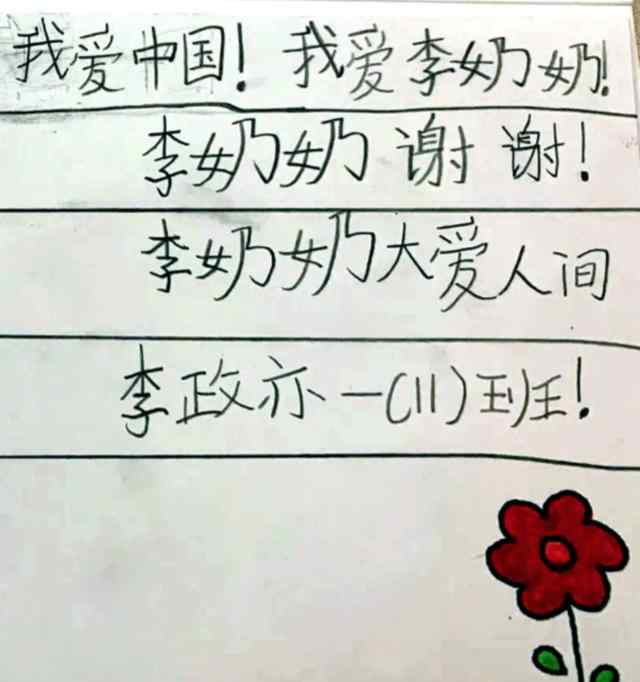 我爱中国！我爱李奶奶！
李奶奶谢谢！
李奶奶大爱人间
李政亦一（11）班！